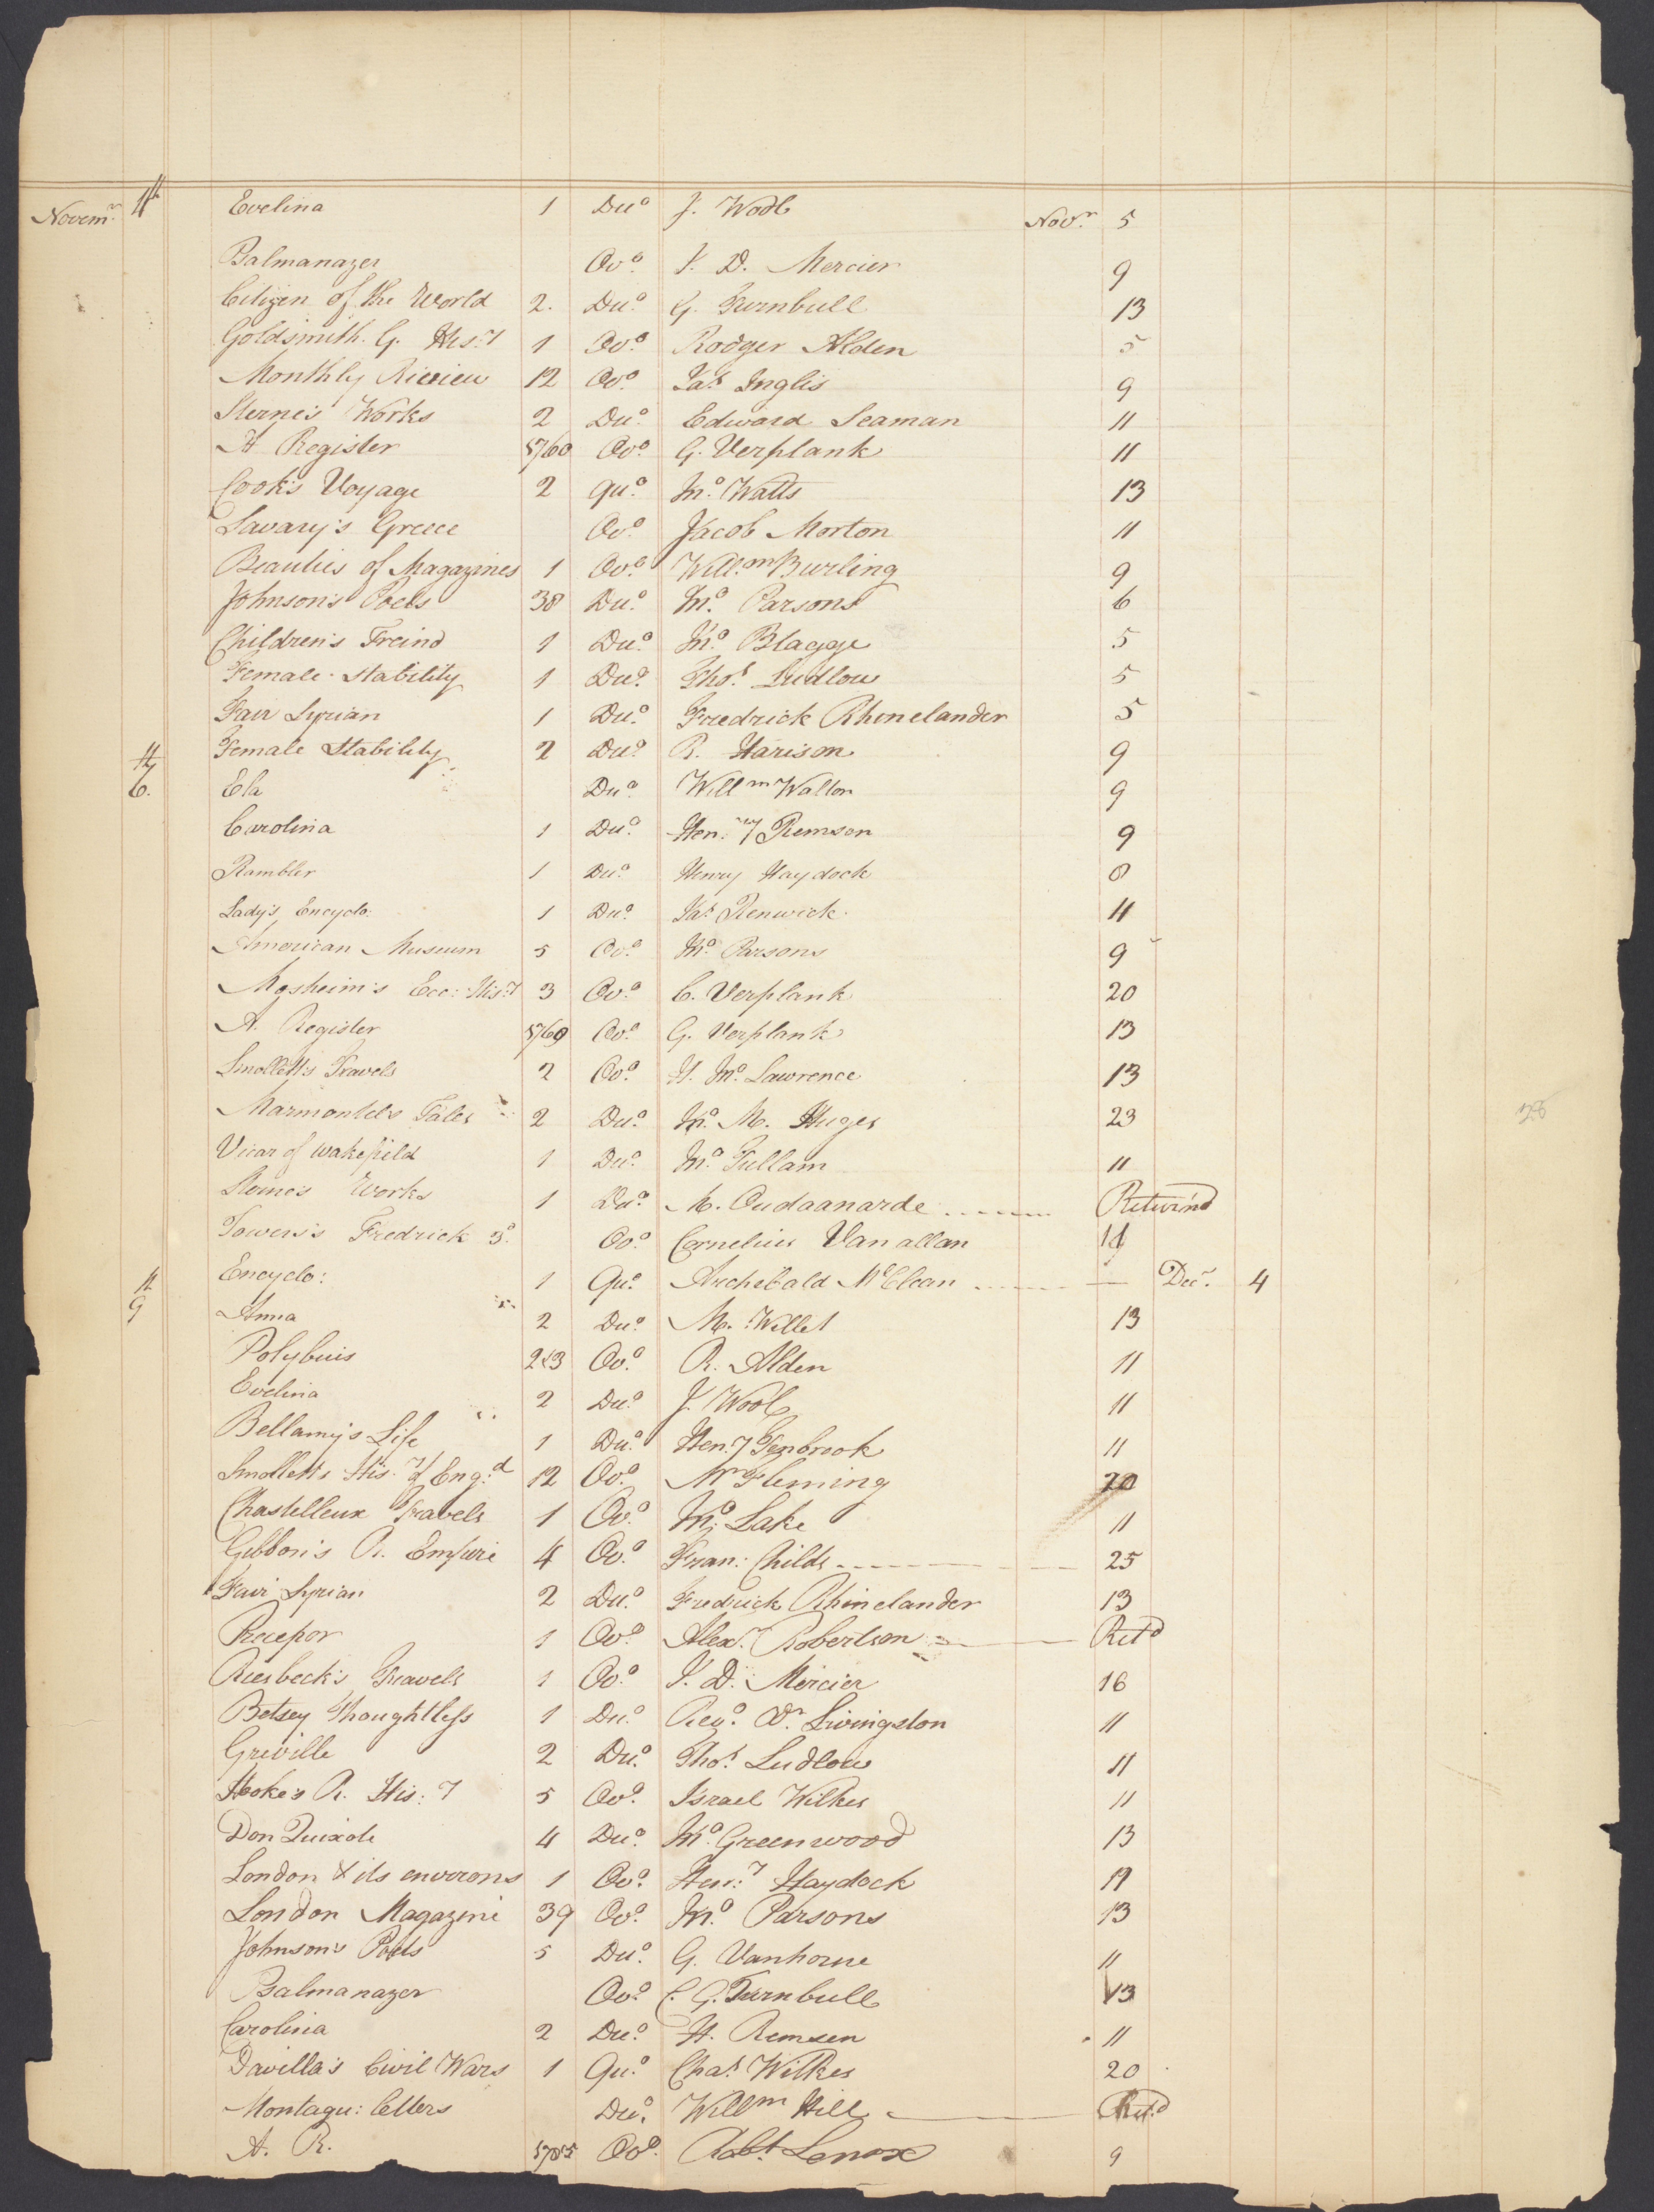 Novemr. 4th Evelina 1 Duo J. Wool Novr. 5
Psalmanazer Ovo. J. D. Mercier 9
Citizen of the World 2. Duo. G. Turnbull 13
Goldsmith. G. His:y 1 Ovo. Rodger Alden 5
Monthly Riewieu 12 Ovo. Jas. Inglis 9
Sterne's Works 2 Duo. Edward Seaman 11
A Register 1760 Ovo. G. Verplank 11
Cook's Voyage 2 Quo. Jno. Watts 13
Savary's Greece Ovo. Jacob Morton 11
Beauties of Magazines 1 Ovo. Will.m Burling 9
Johnson's Poets 38 Duo. Jno. Parsons 6
Children's Freind 1 Duo. Jno. Blagge 5
Female Stability 1 Duo. Thos. Ludlow 5
Fair Syrian 1 Duo. Fredrick Rhinelander 5
Female Stability 2 Duo. R. Harison 9
6. Ela Duo. Willm Walton 9
Carolina 1 Duo. Hen.ry Remson 9
Rambler 1 Duo. Henry Haydock 8
Lady's Encyclo: 1 Duo. Jas. Renwick 11
American Museum 5 Ovo. Jno. Parsons 9
Mosheim's Ecc: His:y 3 Ovo. C. Verplank 20
A. Register 1769 Ovo. G. Verplank 13
Smollett's Travels 2 Ovo. Jno. Lawrence 13
Marmontel's Tales 2 Duo. Jno. M. Huges 23
Vicar of Wakefield 1 Duo. Jno. Tullam 11
Sterne's Works 1 Duo. M. Oudaanarde Return'd
Towers's Fredrick 3d. Ovo. Cornelius Vanallan 14
Encyclo: 1 Quo. Archibald McClean Decr. 4
9 Anna 2 Duo. M. Willet 13
Polybuis 2&3 Ovo. R. Alden 11
Evelina 2 Duo. J. Wool 11
Bellamy's Life 1 Duo. Hen.y Tenbrook 11
Smolletts His.y of Eng.d 12 Ovo. Mr Fleming 20
Chastelleux Travels 1 Ovo. Jno. Lake 11
Gibbon's R. Empire 4 Ovo. Fran: Childs 25
Fair Syrian 2 Duo. Fredrick Rhinelander 13
1 Ovo. Alexr. Robertson Retd
Riesbeck's Travels 1 Ovo. J. D. Mercier 16
Betsey Thoughtless 1 Duo. Revd. Dr. Livingston 11
Greville 2 Duo. Thos. Ludlow 11
Hooke's R. His:y 5 Ovo. Israel Wilkes 11
Don Quixote 4 Duo. Jno. Greenwood 13
London & its environs 1 Ovo. Hen:y Haydock 19
London Magazine 39 Ovo. Jno. Parsons 13
Johnson's Poets 5 Duo. G. Vanhorne 11
Psalmanazer Ovo. C. G. Turnbull 13
Carolina 2 Duo. H. Remsen 11
Davilla's Civil Wars 1 Quo. Chas. Wilkes 20
Montagu: letters Duo. Willm Hill Ret.d
A. R. 1785 Ovo. Robt. Lenox 9